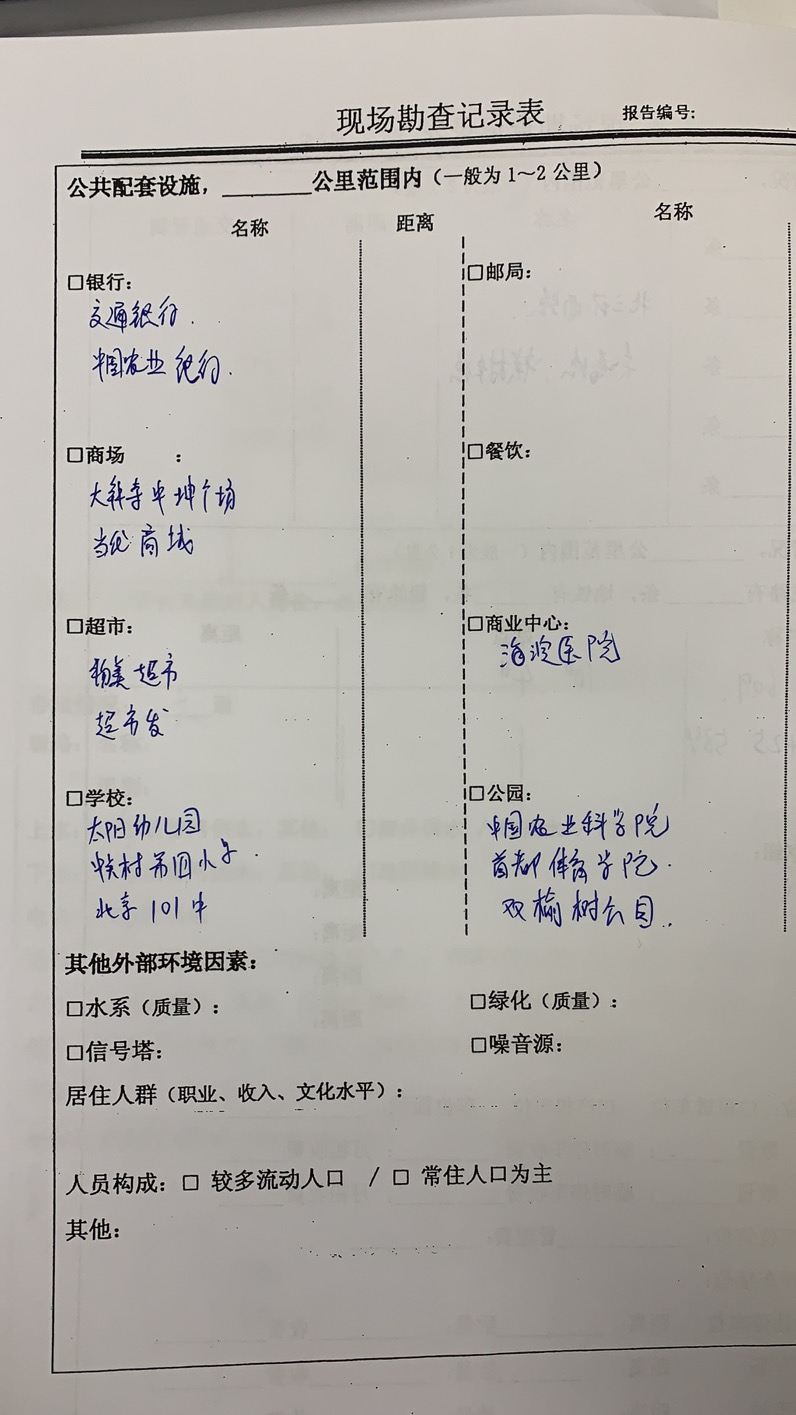 现场勘查记录表 报告编号:
公共配套设施，________公里范围内（一般为1～2公里）
名称 距离 名称
□银行:
交通银行.
中国农业银行.
□商场 :
大钟寺中坤广场
当代商城
□超市:
物美超市
超市发
□学校:
太阳幼儿园
中关村第四小学.
北京101中
□邮局:
□餐饮:
□商业中心:
海淀医院
□公园:
中国农业科学院
首都体育学院.
双榆树公园..
其他外部环境因素:
□水系（质量）: □绿化（质量）:
□信号塔: □噪音源:
居住人群（职业、收入、文化水平）:
人员构成: □ 较多流动人口 / □ 常住人口为主
其他: